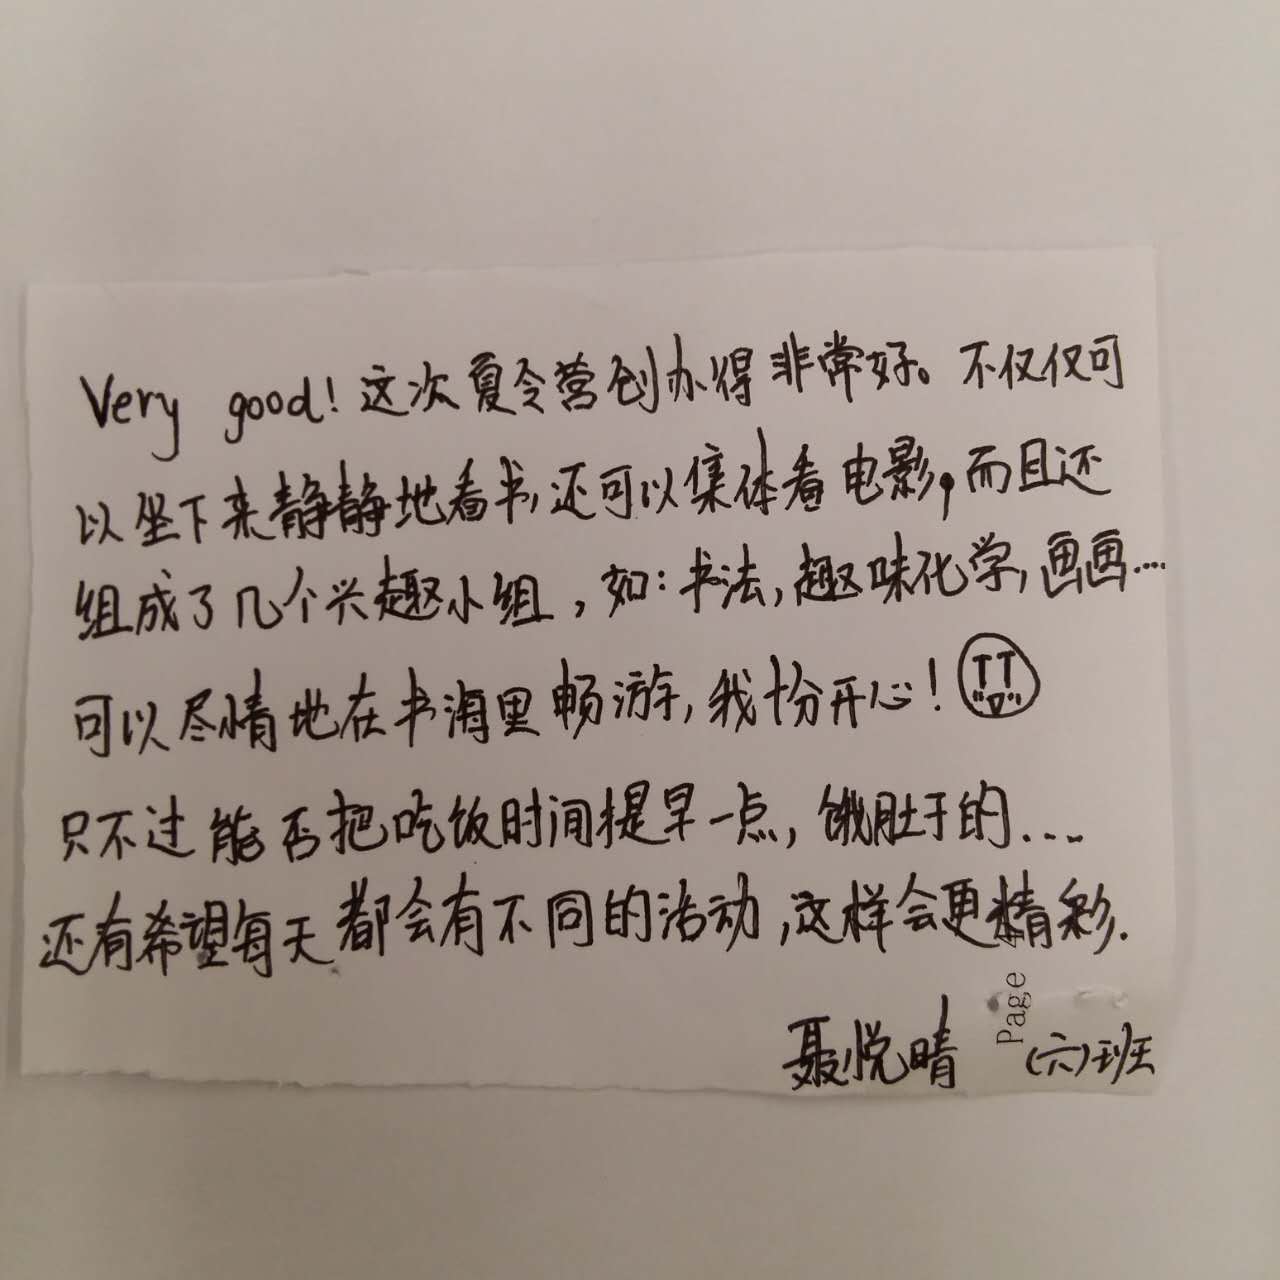 Very good! 这次夏令营创办得非常好。不仅仅可
以坐下来静静地看书,还可以集体看电影,而且还
组成了几个兴趣小组，如：书法,趣味化学,画画…
可以尽情地在书海里畅游,我十份开心！
只不过能否把吃饭时间提早一点,饿肚子的....
还有希望每天都会有不同的活动,这样会更精彩.
聂悦晴 (六)班
Page